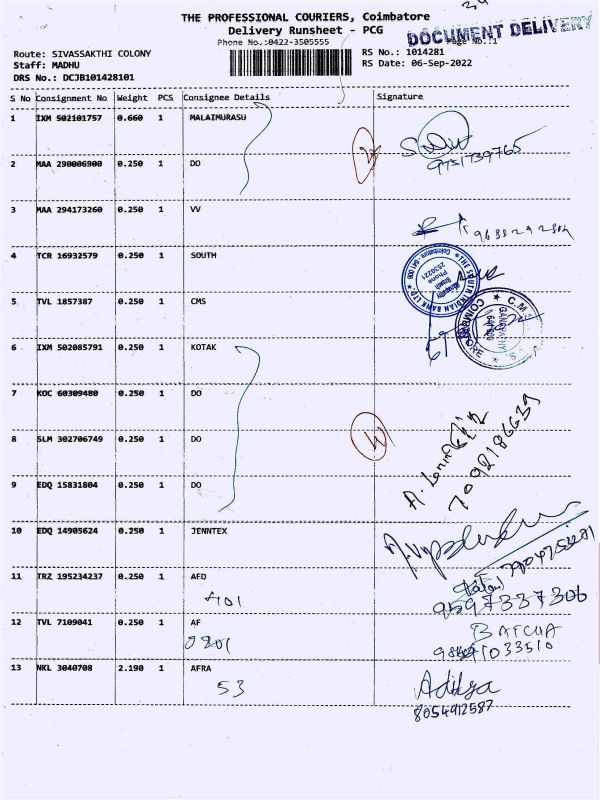 THE PROFESSIONAL COURIERS, Coimbatore
Delivery Runsheet - PCG
DOCUMENT DELIVERY
Phone No.:0422-3505555
Page No.:1
Route: SIVASSAKTHI COLONY
RS No.: 1014281
Staff: MADHU
RS Date: 06-Sep-2022
DRS No.: DCJB101428101
S No Consignment No Weight PCS Consignee Details Signature
1 IXM 502101757 0.660 1 MALAIMURASU
9751739765
2 MAA 290006900 0.250 1 DO
3 MAA 294173260 0.250 1 VV
4 TCR 16932579 0.250 1 SOUTH
THE SOUTH INDIAN BANK LTD
5 TVL 1857387 0.250 1 CMS
6 IXM 502085791 0.250 1 KOTAK
7 KOC 60309480 0.250 1 DO
7092186639
8 SLM 302706749 0.250 1 DO
4
9 EDQ 15831804 0.250 1 DO
10 EDQ 14905624 0.250 1 JENNTEX
11 TRZ 195234237 0.250 1 AFD
9597337306
12 TVL 7109041 0.250 1 AF
BATCHA
13 NKL 3040708 2.190 1 AFRA
53
Aditya
8054912587